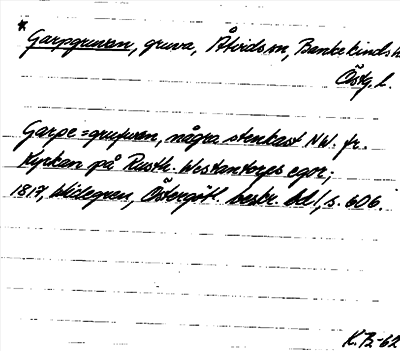 * Garpgruvan, gruva, Åtvids sn, Bankekinds h
Östg. l.
Garpe=grufwan, några stenkast NW. fr.
Kyrkan på Rusth. Westantorps egor;
1817, Widegren, Östergötl. beskr. bd 1, s. 606.
K.B-62